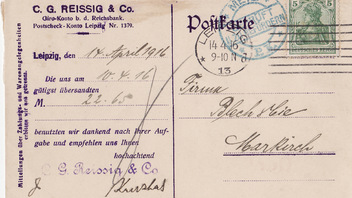 C. G. REISSIG & Co.
Giro-Konto b. d. Reichsbank.
Postscheck-Konto Leipzig Nr. 1370.
Leipzig, den 14. April 1916
Die uns am
10. 4. 16
gütigst übersandten
M. 22.65
benutzten wir dankend nach Ihrer Auf-
gabe und empfehlen uns Ihnen
hochachtend
C. G. Reissig & Co
Mitteilungen über Zahlungs- und Warenangelegenheiten
erbitten wir uns getrennt.
Postkarte
LEIPZIG
14.4.16
9-10 N
* 13
5
Firma
Blech & Cie
Markirch